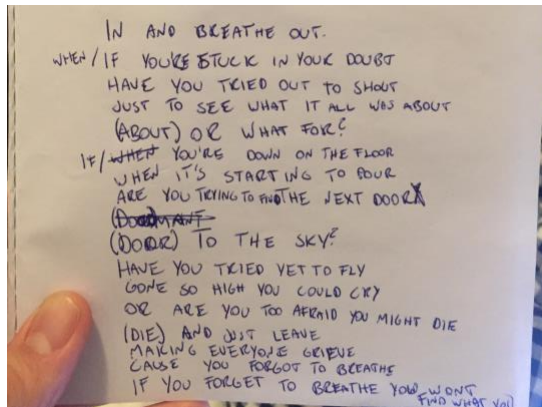 IN AND BREATHE OUT.
WHEN/IF YOU'RE STUCK IN YOUR DOUBT
HAVE YOU TRIED OUT TO SHOUT
JUST TO SEE WHAT IT ALL WAS ABOUT
(ABOUT) OR WHAT FOR?
IF/WHEN YOU'RE DOWN ON THE FLOOR
WHEN IT'S STARTING TO POUR
ARE YOU TRYING TO FIND THE NEXT DOOR
(DOOR) TO THE SKY?
HAVE YOU TRIED YET TO FLY
GONE SO HIGH YOU COULD CRY
OR ARE YOU TOO AFRAID YOU MIGHT DIE
(DIE) AND JUST LEAVE
MAKING EVERYONE GRIEVE
CAUSE YOU FORGOT TO BREATHE
IF YOU FORGET TO BREATHE YOU WONT
FIND WHAT YOU